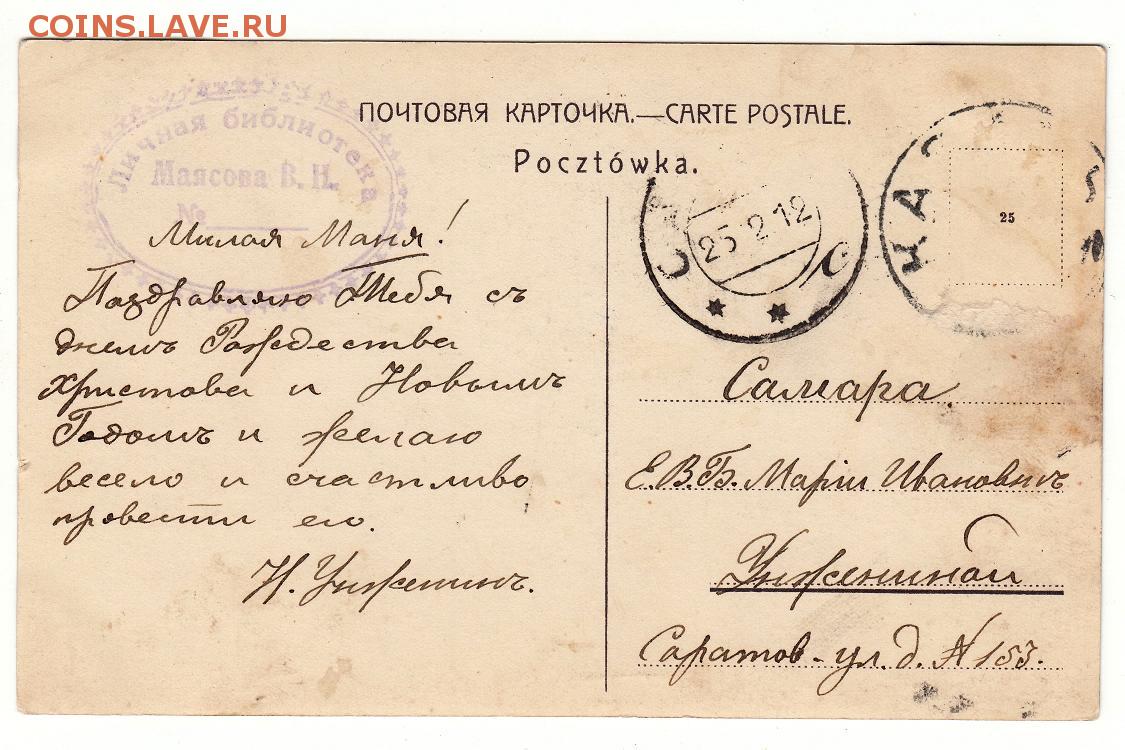 COINS.LAVE.RU
ПОЧТОВАЯ КАРТОЧКА.—CARTE POSTALE.
Pocztówka.
Личная библиотека
Маясова В. Н.
№
25 2 12
25
Милая Маня!
Поздравляю Тебя съ
днемъ Рождества
Христова и Новымъ
Годомъ и желаю
весело и счастливо
провести его.
Н. Унженинъ.
Самара.
Е.В.Б. Маріи Ивановнѣ
Унжениной
Саратов-ул. д. № 153.